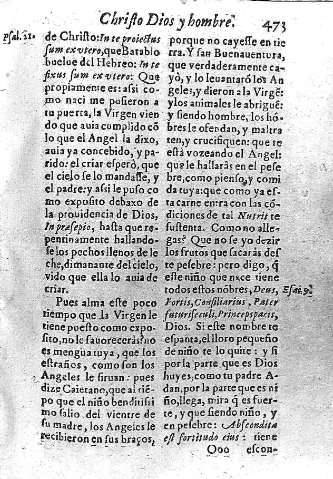 Christo Dios y hombre.
473
Psal. 21.
de Christo: In te proiectus
sum ex vtero, que Batablo
buelue del Hebreo: In te
fixus sum ex vtero: Que
propiamente es: assi co-
mo naci me pusieron a
tu puerta, la Virgen vien
do que auia cumplido cō
lo que el Angel la dixo,
auia ya concebido, y pa-
rido: el criar esperò, que
el cielo se lo mandasse, y
el padre: y assi le puso co
mo exposito debaxo de
la prouidencia de Dios,
In præsepio, hasta que re-
pentinamente hallando-
se los pechos llenos de le
che, dimanante del cielo,
vido que ella lo auia de
criar.
Pues alma este poco
tiempo que la Virgen le
tiene puesto como expo-
sito, no le fauoreceràs? no
es mengua tuya, que los
estraños, como son los
Angeles le siruan: pues
dize Caietano, que al tiē-
po que el niño benditissi
mo salio del vientre de
su madre, los Angeles le
recibieron en sus braços,
porque no cayesse en tie
rra. Y san Buenauentura,
que verdaderamente ca-
yò, y lo leuantarō los An
geles, y dieron a la Virgē:
y los animales le abriguē:
y siendo hombre, los hō-
bres le ofendan, y maltra
ten, y crucifiquen: que te
està vozeando el Angel:
que le hallaràs en el pese
bre, como pienso, y comi
da tuya: que como ya es-
ta carne entra con las cō-
diciones de tal Nutrit te
sustenta. Como no alle-
gas? Que no se yo dezir
los frutos que sacaràs des
te pesebre: pero digo, q̄
este niño que nace tiene
todos estos nōbres, Deus,
Esai. 9.
Fortis, Consiliarius, Pater
futuri seculi, Princeps pacis,
Dios. Si este nombre te
espanta, el lloro pequeño
de niño te lo quite: y si
por la parte que es Dios
huyes, como tu padre A-
dan, por la parte que es ni
ño, llega, mira q̄ es fuer-
te, y que siendo niño, y
en pesebre: Abscondita
est fortitudo eius: tiene
Ooo
escon-